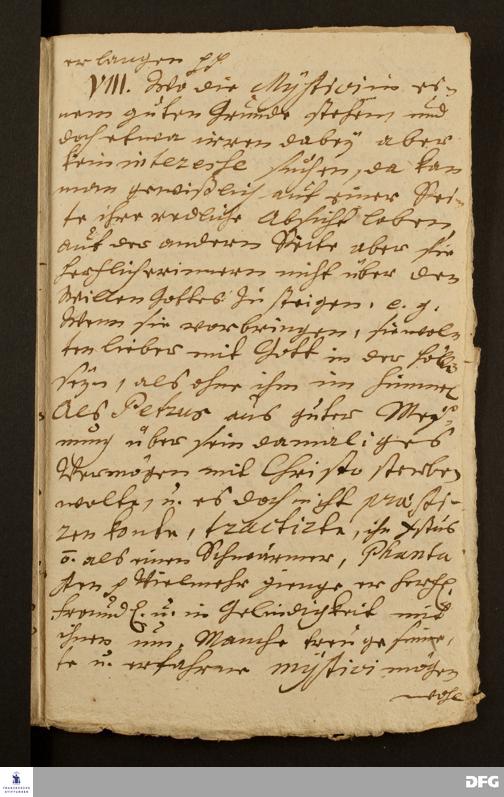 erlangen pp
VIII. Wo die Mystici in ei-
nem guten Grunde stehen, und
doch etwa irren dabey aber
kein interesse suchen, da kan
man gewißlich auf einer Sei-
te ihre redliche Absicht loben
auf der andern Seite aber sie
hertzlich erinnern nicht über den
Willen Gottes zu steigen, e. g.
Wenn sie vorbringen, sie wol-
ten lieber mit Gott in der Hölle
seyn, als ohne ihm im Himmel
Als Petrus aus guter Mey-
nung über sein damaliges
Vermögen mit Christo sterben
wolte, u. es doch nicht praesti-
ren konte, tractirte, ihn Xstus
als einen Schwärmer, Phanta
sten p Vielmehr gienge er
freundl. u. in Gelindigkeit mit
ihnen um. Manche treu gesinne-
te u. erfahrne mystici mögen
wohl
FRANCKESCHE
STIFTUNGEN
DFG